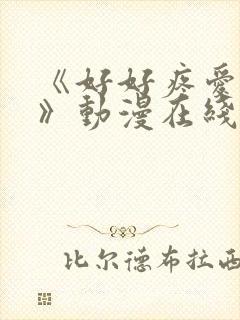 《好好疼爱
》動漫在线
比尔德布拉西